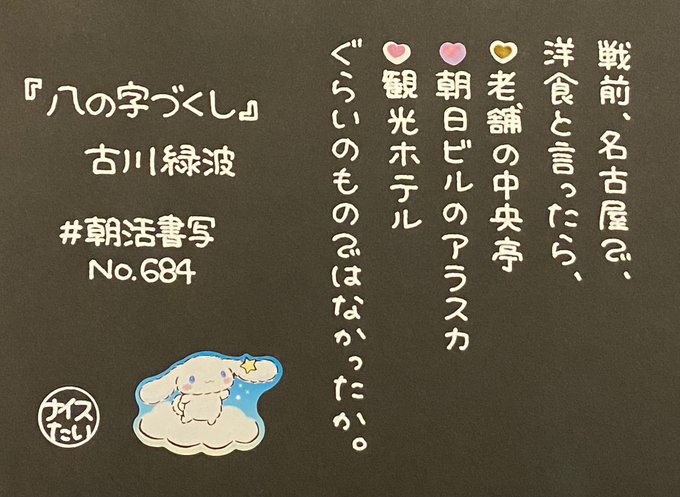 戦前、名古屋で、
洋食と言ったら、
老舗の中央亭
朝日ビルのアラスカ
観光ホテル
ぐらいのものではなかったか。
『八の字づくし』
古川緑波
#朝活書写
No.684
ナイス
たい